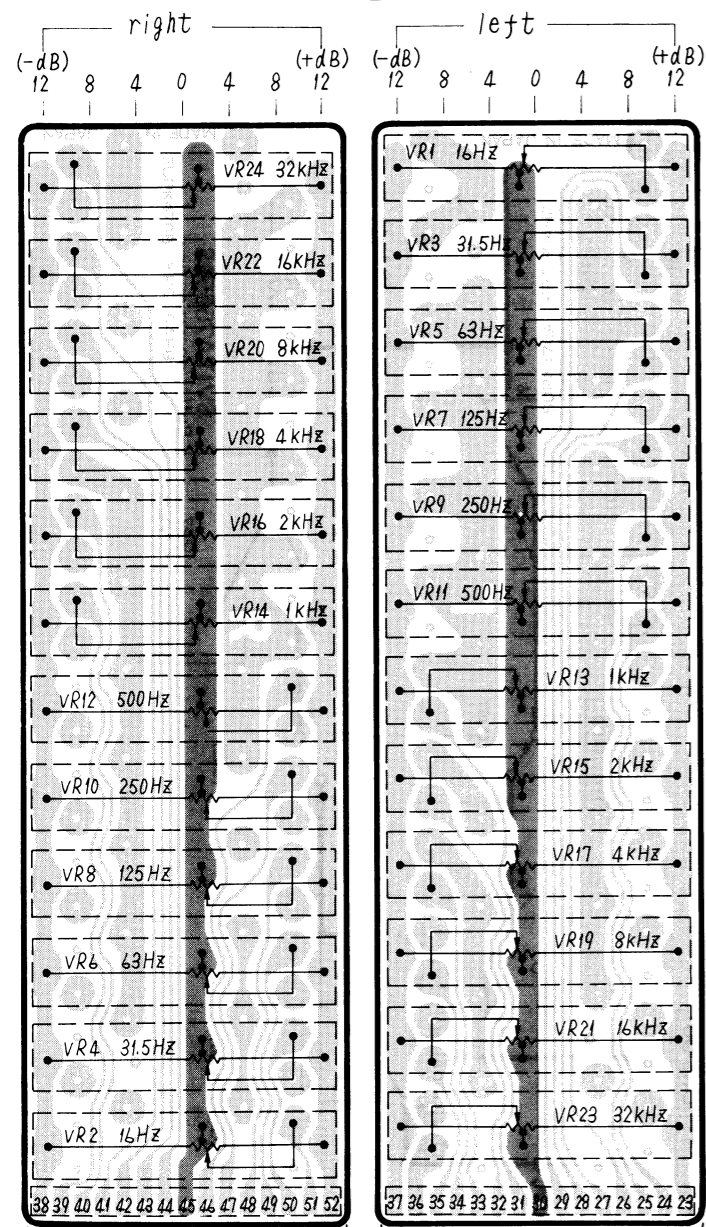 right
(-dB) (+dB)
12 8 4 0 4 8 12
VR24 32kHz
VR22 16kHz
VR20 8kHz
VR18 4kHz
VR16 2kHz
VR14 1kHz
VR12 500Hz
VR10 250Hz
VR8 125Hz
VR6 63Hz
VR4 31.5Hz
VR2 16Hz
38 39 40 41 42 43 44 45 46 47 48 49 50 51 52
left
(-dB) (+dB)
12 8 4 0 4 8 12
VR1 16Hz
VR3 31.5Hz
VR5 63Hz
VR7 125Hz
VR9 250Hz
VR11 500Hz
VR13 1kHz
VR15 2kHz
VR17 4kHz
VR19 8kHz
VR21 16kHz
VR23 32kHz
37 36 35 34 33 32 31 30 29 28 27 26 25 24 23